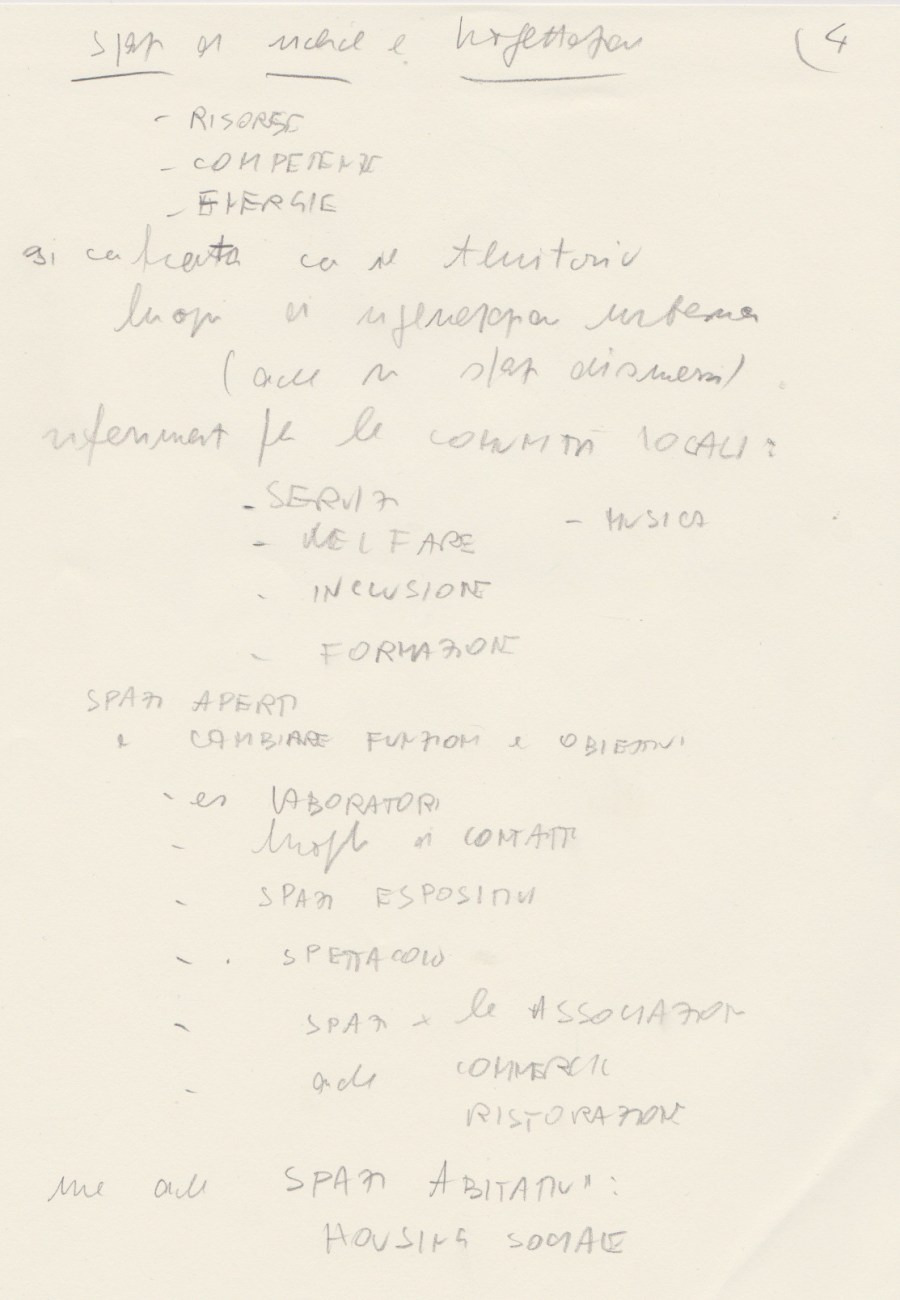 spazi di ricerca e progettazione (4
- RISORSE
- COMPETENZE
- ENERGIE
si confronta con il territorio
luoghi di rigenerazione urbana
(anche in spazi dismessi)
riferimenti per le COMUNITÀ LOCALI:
- SERVIZI
- MUSICA
- WELFARE
- INCLUSIONE
- FORMAZIONE
SPAZI APERTI
a CAMBIARE FUNZIONI e OBIETTIVI
- es LABORATORI
- luoghi di CONTATTI
- SPAZI ESPOSITIVI
- . SPETTACOLO
- SPAZI x le ASSOCIAZIONI
- anche COMMERCIO
RISTORAZIONE
ma anche SPAZI ABITATIVI:
HOUSING SOCIALE